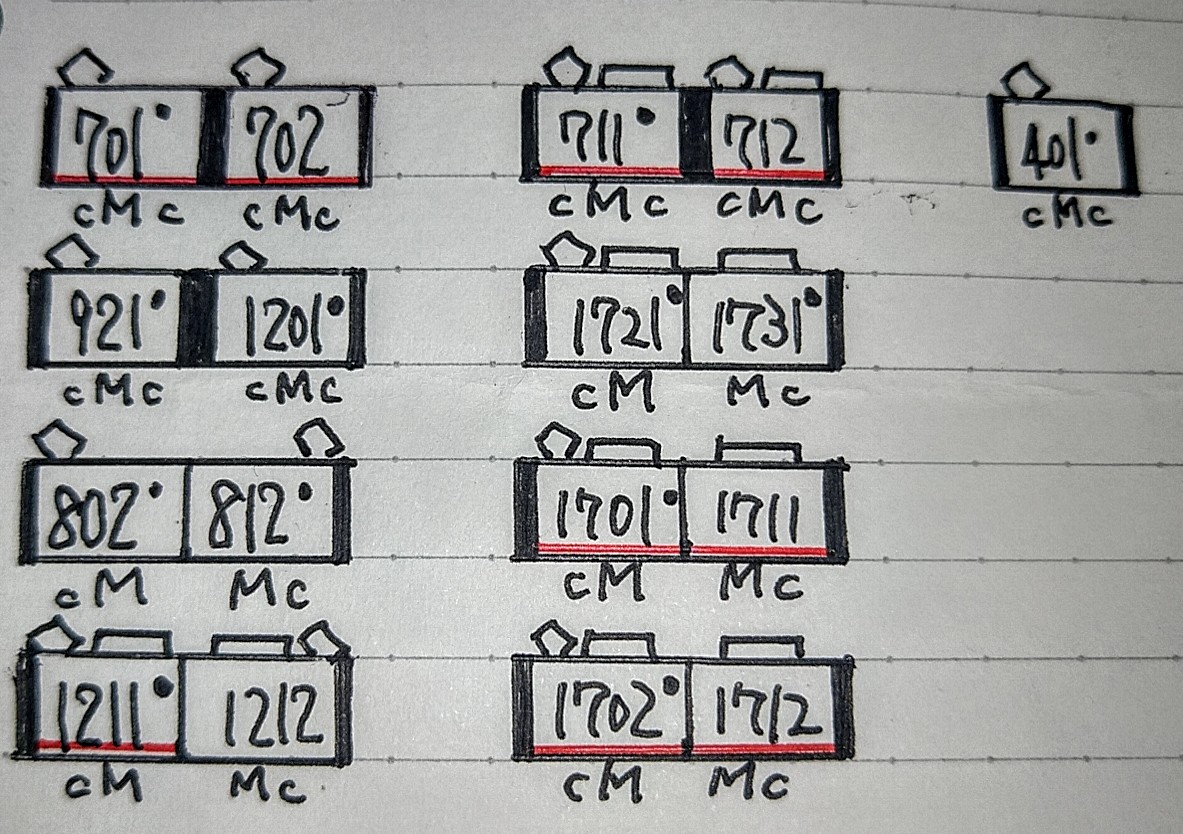 701• 702 711• 712 401•
cMc cMc cMc cMc cMc
921• 1201• 1721• 1731•
cMc cMc cM Mc
802• 812• 1701• 1711
cM Mc cM Mc
1211• 1212 1702• 1712
cM Mc cM Mc